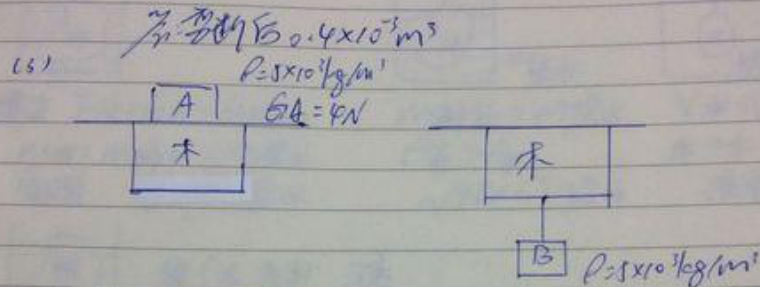 0.4×10⁻³m³
(3)
ρ=5×10³kg/m³
A GA=4N
木 木
B ρ=5×10³kg/m³